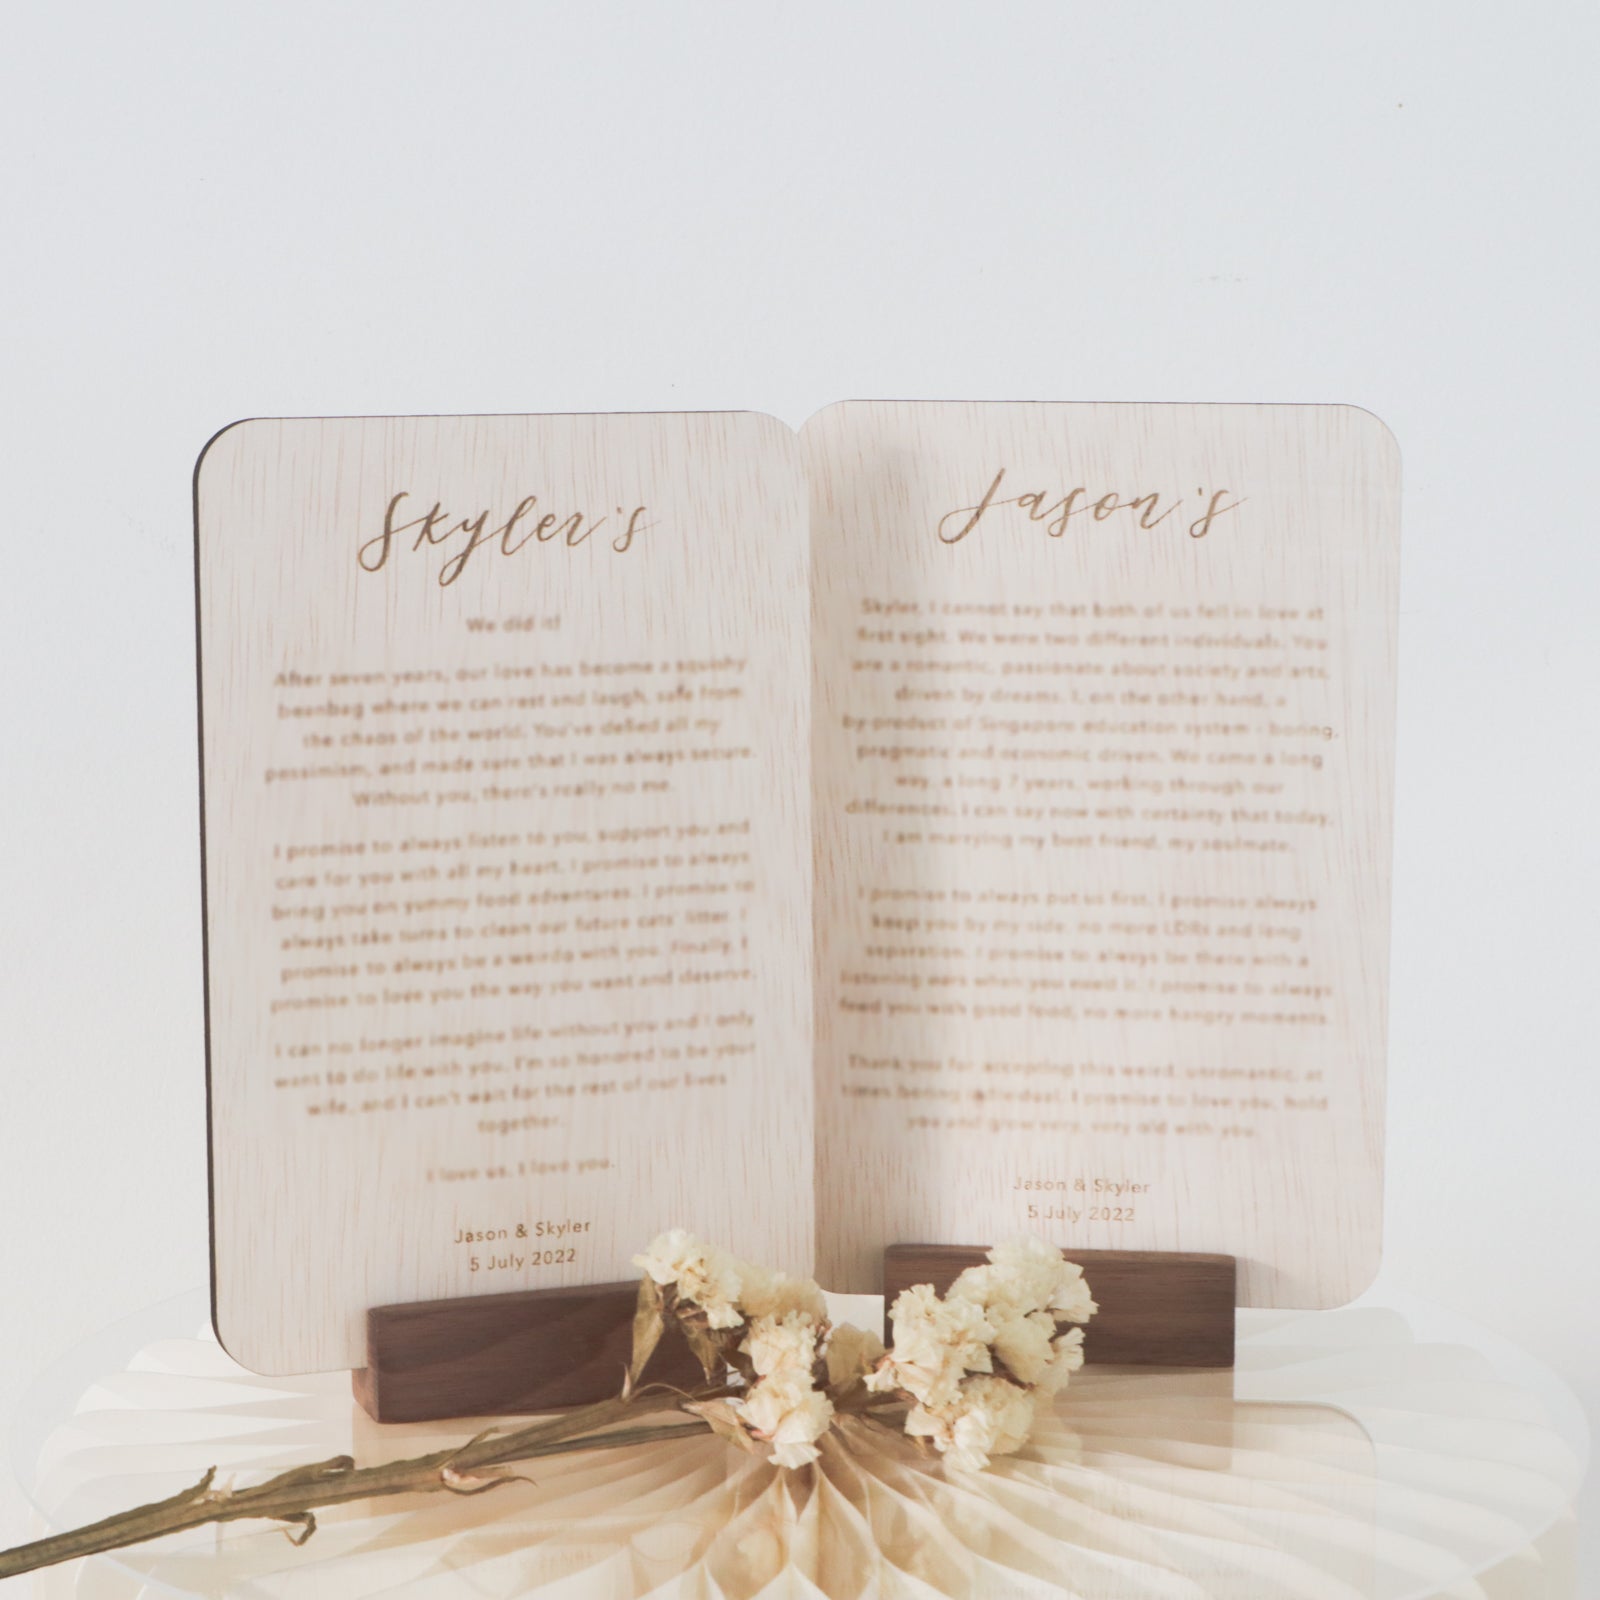 Skyler's
We did it!
After seven years, our love has become a squishy
beanbag where we can rest and laugh, safe from
the chaos of the world. You've defied all my
pessimism, and made sure that I was always secure.
Without you, there's really no me.
I promise to always listen to you, support you and
care for you with all my heart. I promise to always
bring you on yummy food adventures. I promise to
always take turns to clean our future cats' litter. I
promise to always be a weirdo with you. Finally, I
promise to love you the way you want and deserve.
I can no longer imagine life without you and I only
want to do life with you. I'm so honored to be your
wife, and I can't wait for the rest of our lives
together.
I love us. I love you.
Jason & Skyler
5 July 2022
Jason's
Skyler, I cannot say that both of us fell in love at
first sight. We were two different individuals. You
are a romantic, passionate about society and arts,
driven by dreams. I, on the other hand, a
by-product of Singapore education system - boring,
pragmatic and economic driven. We came a long
way, a long 7 years, working through our
differences. I can say now with certainty that today,
I am marrying my best friend, my soulmate.
I promise to always put us first. I promise always
keep you by my side, no more LDRs and long
separation. I promise to always be there with a
listening ears when you need it. I promise to always
feed you with good food, no more hangry moments.
Thank you for accepting this weird, unromantic, at
times boring individual. I promise to love you, hold
you and grow very, very old with you.
Jason & Skyler
5 July 2022